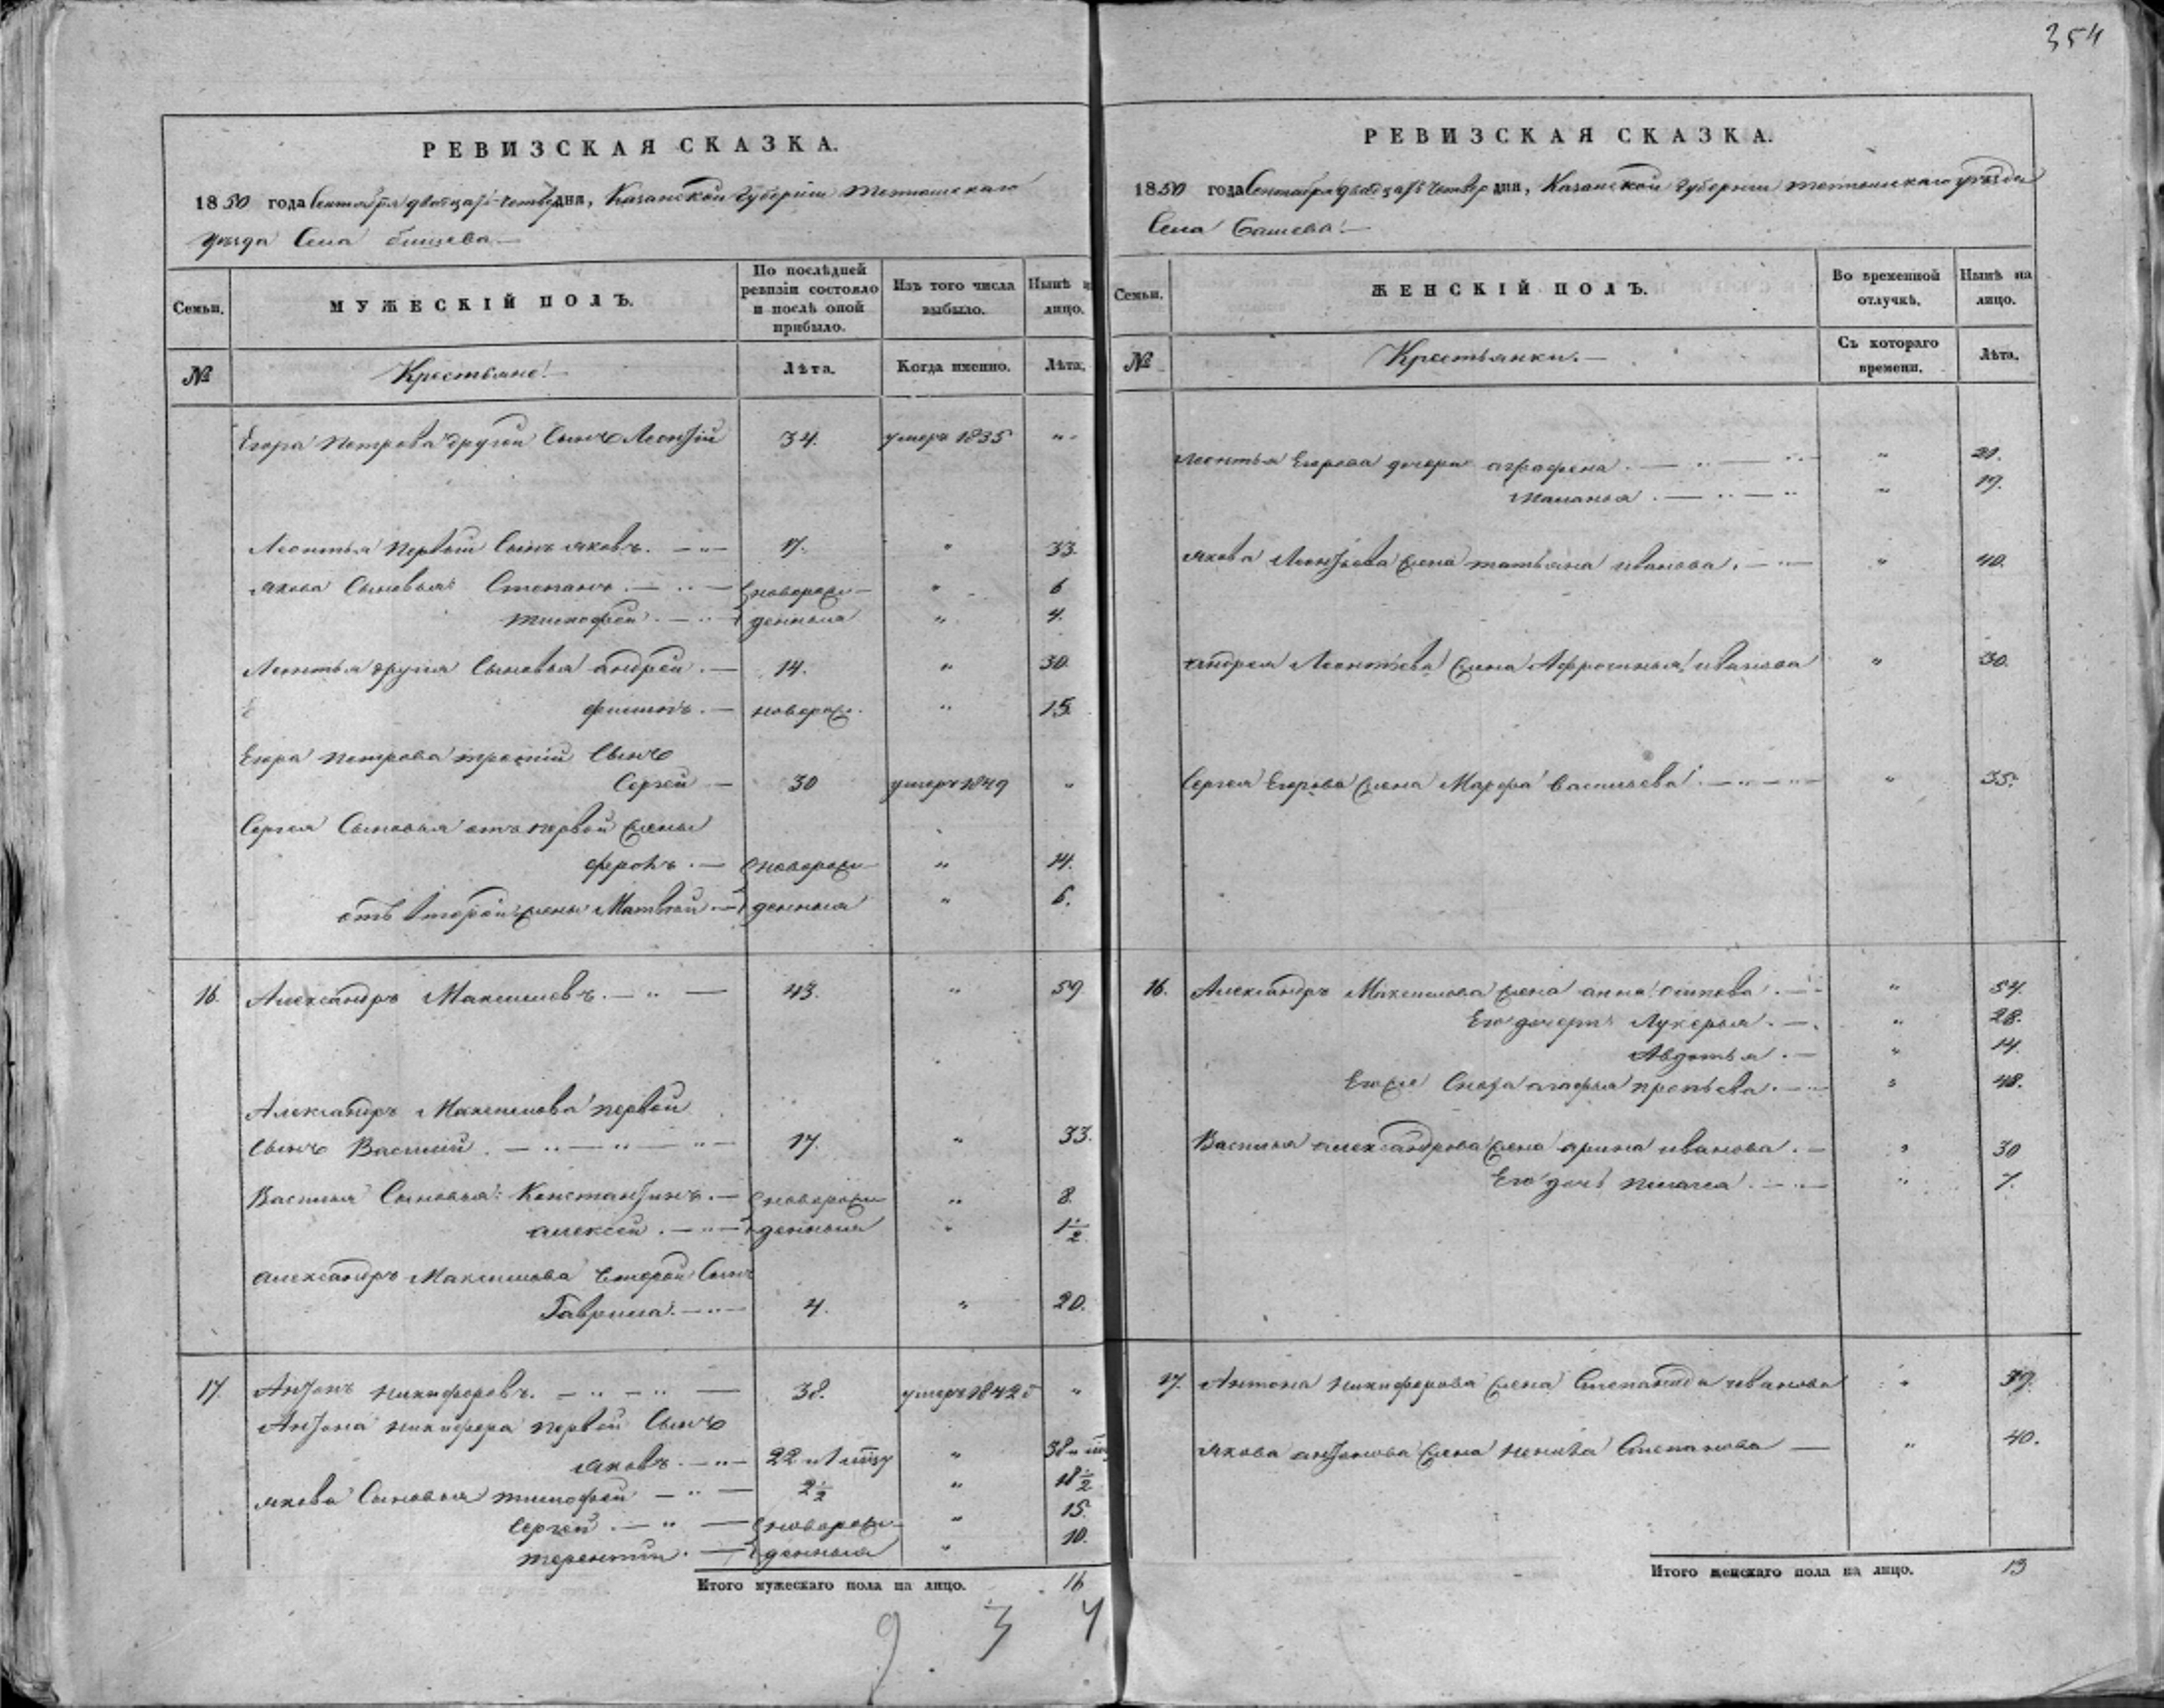 354
РЕВИЗСКАЯ СКАЗКА.
1850 года Сентября двадцать четвер дня, Казанской Губернии Тетюшскаго
уезда Села
Семьи.
МУЖЕСКІЙ ПОЛЪ.
По послѣдней ревизіи состояло и послѣ оной прибыло.
Изъ того числа выбыло.
Нынѣ на лицо.
№
Крестьяне.
Лѣта.
Когда именно.
Лѣта.
Егора Петрова другой Сынъ Леонтiй 34. умеръ 1835 "
Леонтья первый Сынъ яковъ. 17. " 33.
якова Сыновья Степанъ новорож- " 6
тимофей денныя " 4.
Леонтья другия Сыновья андрей 14. " 30.
филипъ новорож. " 15.
Егора Петрова третiй Сынъ
Сергей 30 умеръ 1849 "
Сергея Сыновья отъ первой жены
фролъ новорож- " 14.
отъ второй жены Матвей денныя " 6.
16. Александръ Максимовъ. 43. " 59
Александръ Максимова первой
Сынъ Василий 17. " 33.
Василья Сыновья: Константинъ новорож- " 8.
алексей денныя " 1½
александръ Максимова второй Сынъ
Гаврила 4. " 20.
17. Антонъ никифоровъ. 38. умеръ 1842 "
Антона никифора первой Сынъ
яковъ 22 " 38
якова Сыновья тимофей 2½ " 18½
Сергей новорож- " 15.
терентий денныя " 10.
Итого мужескаго пола на лицо. 16
9. 3 4
РЕВИЗСКАЯ СКАЗКА.
1850 года Сентября двадцать четвер дня, Казанской Губернии тетюшскаго уезда
Села
Семьи.
ЖЕНСКІЙ ПОЛЪ.
Во временной отлучкѣ.
Нынѣ на лицо.
№
Крестьянки.
Съ котораго времени.
Лѣта.
Леонтья Егорова дочери аграфена " 21.
Маланья " 19.
якова Леонтьева жена татьяна иванова " 40.
андрея Леонтьева жена Афросинья иванова " 30.
Сергея Егорова жена Марфа васильева " 35.
16. Александръ Максимова жена анна осипова " 54.
Его дочери Лукерья " 28.
Авдотья " 14.
Его же Сноха агафья " 48.
Василья александрова жена арина иванова " 30
Его дочь пелагея " 7.
17. Антона никифорова жена Степанида иванова " 39.
якова антонова жена Степанова " 40.
Итого женскаго пола на лицо. 13